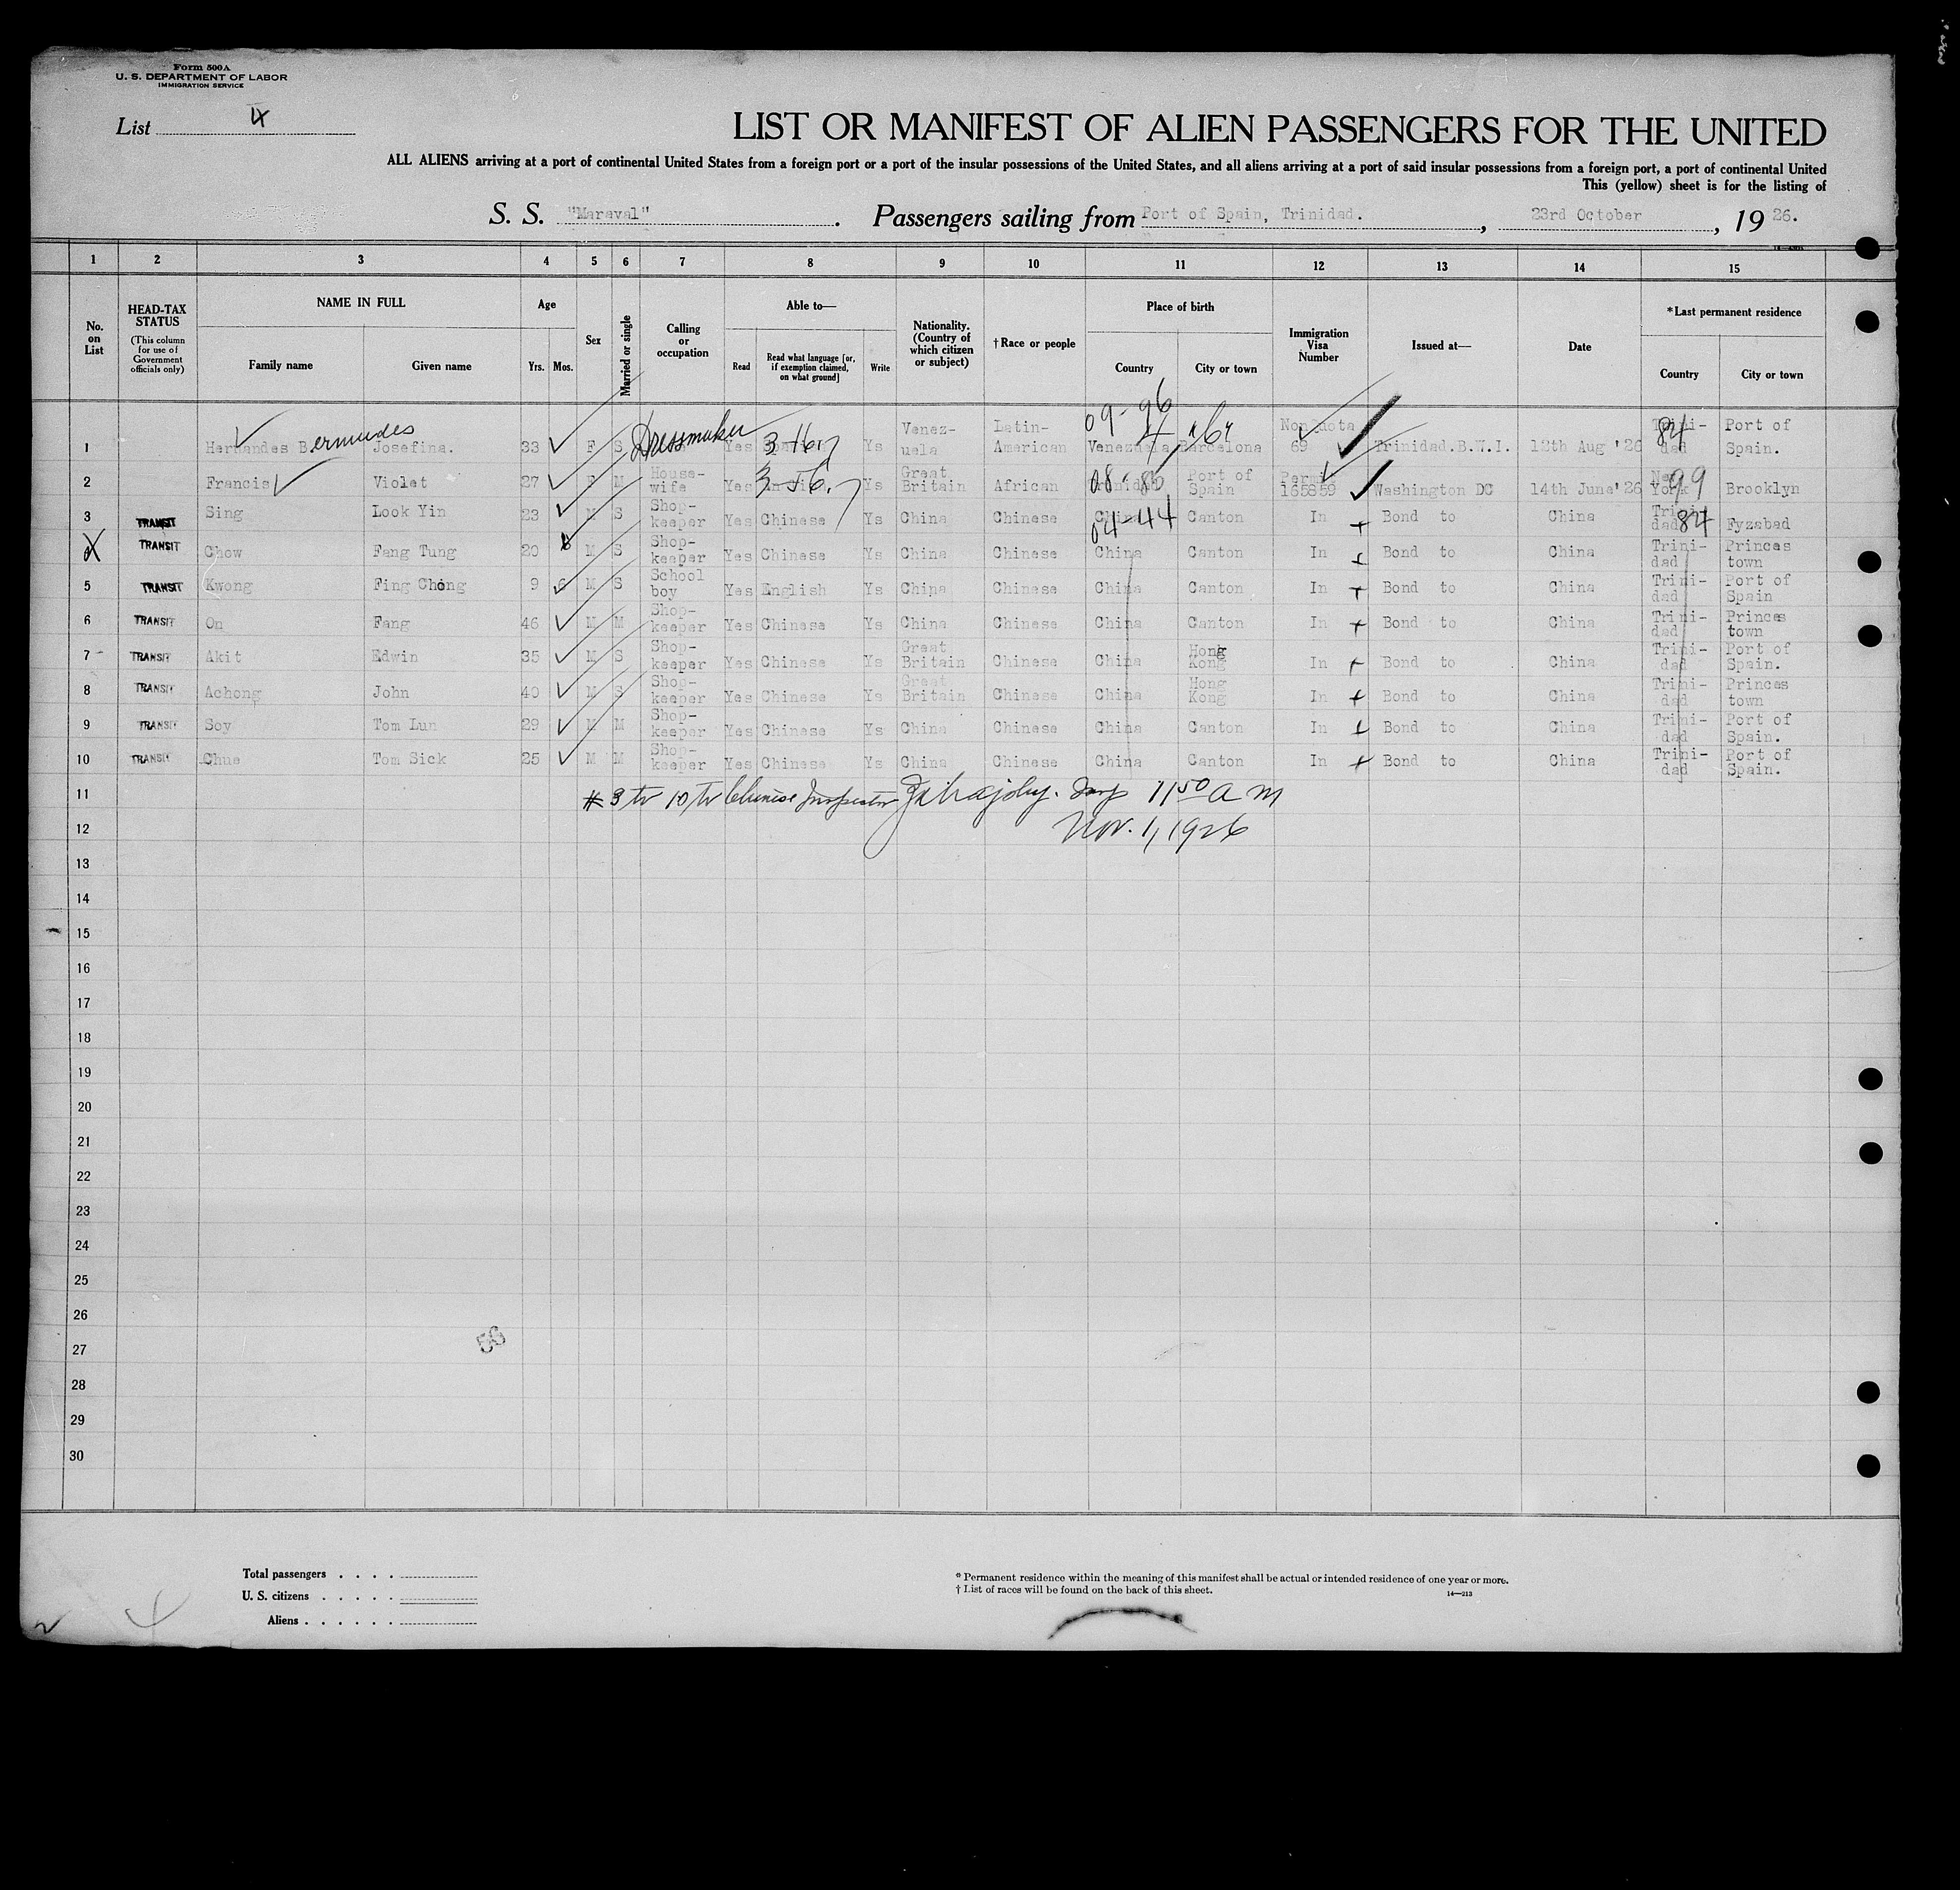 Form 500A
U. S. DEPARTMENT OF LABOR
IMMIGRATION SERVICE
List 4
LIST OR MANIFEST OF ALIEN PASSENGERS FOR THE UNITED
ALL ALIENS arriving at a port of continental United States from a foreign port or a port of the insular possessions of the United States, and all aliens arriving at a port of said insular possessions from a foreign port, a port of continental United
This (yellow) sheet is for the listing of
S. S. "Maraval". Passengers sailing from Port of Spain, Trinidad., 23rd October, 1926.
1 2 3 4 5 6 7 8 9 10 11 12 13 14 15
No. on List HEAD-TAX STATUS (This column for use of Government officials only) NAME IN FULL Family name Given name Age Yrs. Mos. Sex Married or single Calling or occupation Able to— Read Read what language [or, if exemption claimed, on what ground] Write Nationality. (Country of which citizen or subject) †Race or people Place of birth Country City or town Immigration Visa Number Issued at— Date *Last permanent residence Country City or town
09-96
1 Hernandes Bermudes Josefina. 33 F S Dressmaker Yes 3-16 Ys Venez-uela Latin-American Venezuela Barcelona Non quota 69 Trinidad.B.W.I. 12th Aug '26 Trini-dad 84 Port of Spain.
2 Francis Violet 27 F M House-wife Yes Ys Great Britain African Port of Spain Permit 165859 Washington DC 14th June'26 New York 99 Brooklyn
3 TRANSIT Sing Look Yin 23 M S Shop-keeper Yes Chinese Ys China Chinese China 04-44 Canton In Bond to China Trini-dad 84 Fyzabad
4 TRANSIT Chow Fang Tung 20 M S Shop-keeper Yes Chinese Ys China Chinese China Canton In Bond to China Trini-dad Princes town
5 TRANSIT Kwong Fing Chong 9 6 M S School boy Yes English Ys China Chinese China Canton In Bond to China Trini-dad Port of Spain
6 TRANSIT On Fang 46 M M Shop-keeper Yes Chinese Ys China Chinese China Canton In Bond to China Trini-dad Princes town
7 TRANSIT Akit Edwin 35 M S Shop-keeper Yes Chinese Ys Great Britain Chinese China Hong Kong In Bond to China Trini-dad Port of Spain.
8 TRANSIT Achong John 40 M S Shop-keeper Yes Chinese Ys Great Britain Chinese China Hong Kong In Bond to China Trini-dad Princes town
9 TRANSIT Soy Tom Lun 29 M M Shop-keeper Yes Chinese Ys China Chinese China Canton In Bond to China Trini-dad Port of Spain.
10 TRANSIT Chue Tom Sick 25 M M Shop-keeper Yes Chinese Ys China Chinese China Canton In Bond to China Trini-dad Port of Spain.
11 #3 to 10 to Chinese Inspector 11 50 a m
12 Nov. 1, 1926
13
14
15
16
17
18
19
20
21
22
23
24
25
26
27
28
29
30
56
Total passengers
U. S. citizens
Aliens
* Permanent residence within the meaning of this manifest shall be actual or intended residence of one year or more.
† List of races will be found on the back of this sheet.
14—213